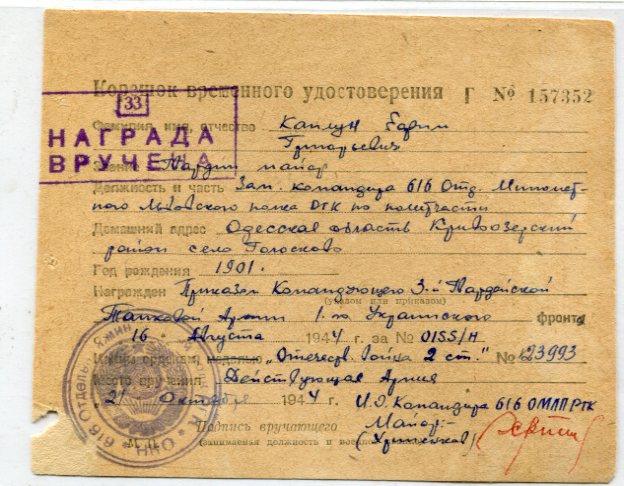 Корешок временного удостоверения Г № 157352
33
НАГРАДА
ВРУЧЕНА
Фамилия, имя, отчество Каплун Ефим
Григорьевич
Звание Гвардии майор
Должность и часть Зам. командира 616 Отд. Миномет-
ного Львовского полка РГК по политчасти
Домашний адрес Одесская область Кривоозерский
район село Голосково
Год рождения 1901г.
Награжден Приказом Командующего 3-й Гвардейской
(указом или приказом)
Танковой Армии 1-го Украинского фронта
16 Августа 1944 г. за № 0155/Н
орденом, медалью „Отечеств. война 2 ст." № 23993
Место вручения Действующая Армия
21 Октября 1944 г. И.О. Командира 616 ОМЛП РГК
Подпись вручающего Майор:-
(занимаемая должность и военное
616 ОТДЕЛЬН